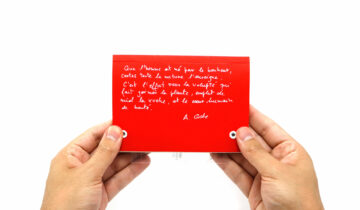 Que l'homme est né pour le bonheur,
certes toute la nature l'enseigne.
C'est l'effort vers la volupté qui
fait germer la plante, emplit de
miel la ruche, et le cœur humain
de bonté.
A. Gide